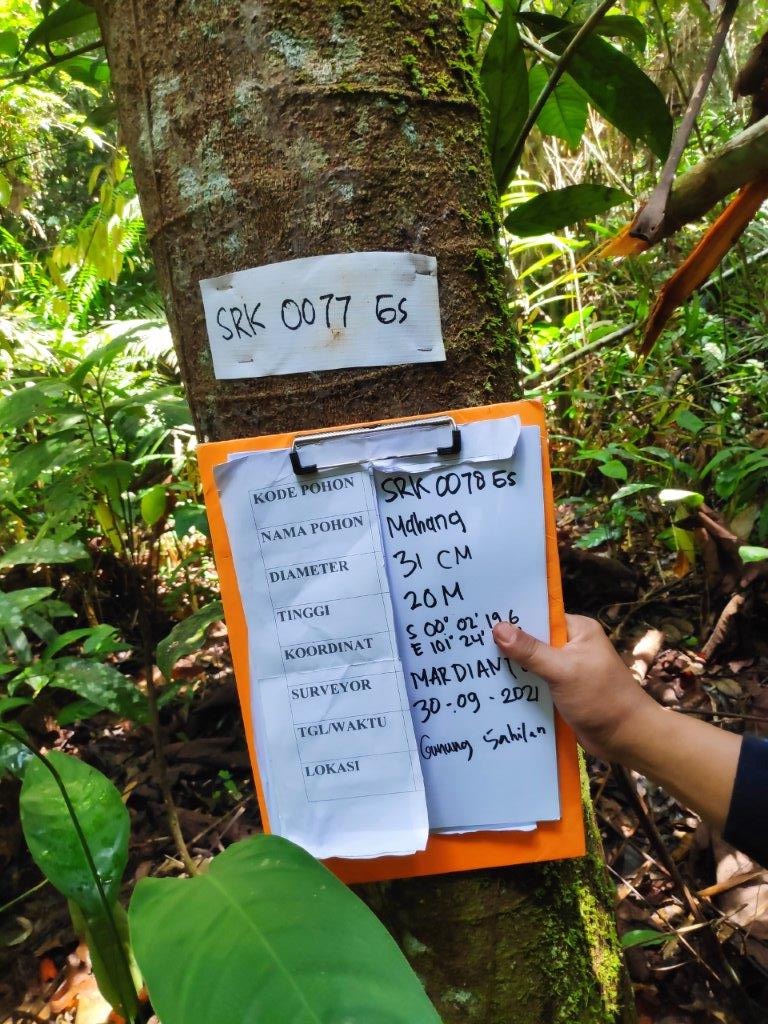 SRK 0077 Es
KODE POHON SRK 0078 Es
NAMA POHON Mahang
DIAMETER 31 CM
TINGGI 20 M
KOORDINAT S 00° 02' 19.6
E 101° 24'
SURVEYOR
TGL/WAKTU 30-09-2021
LOKASI Gunung Sahilan